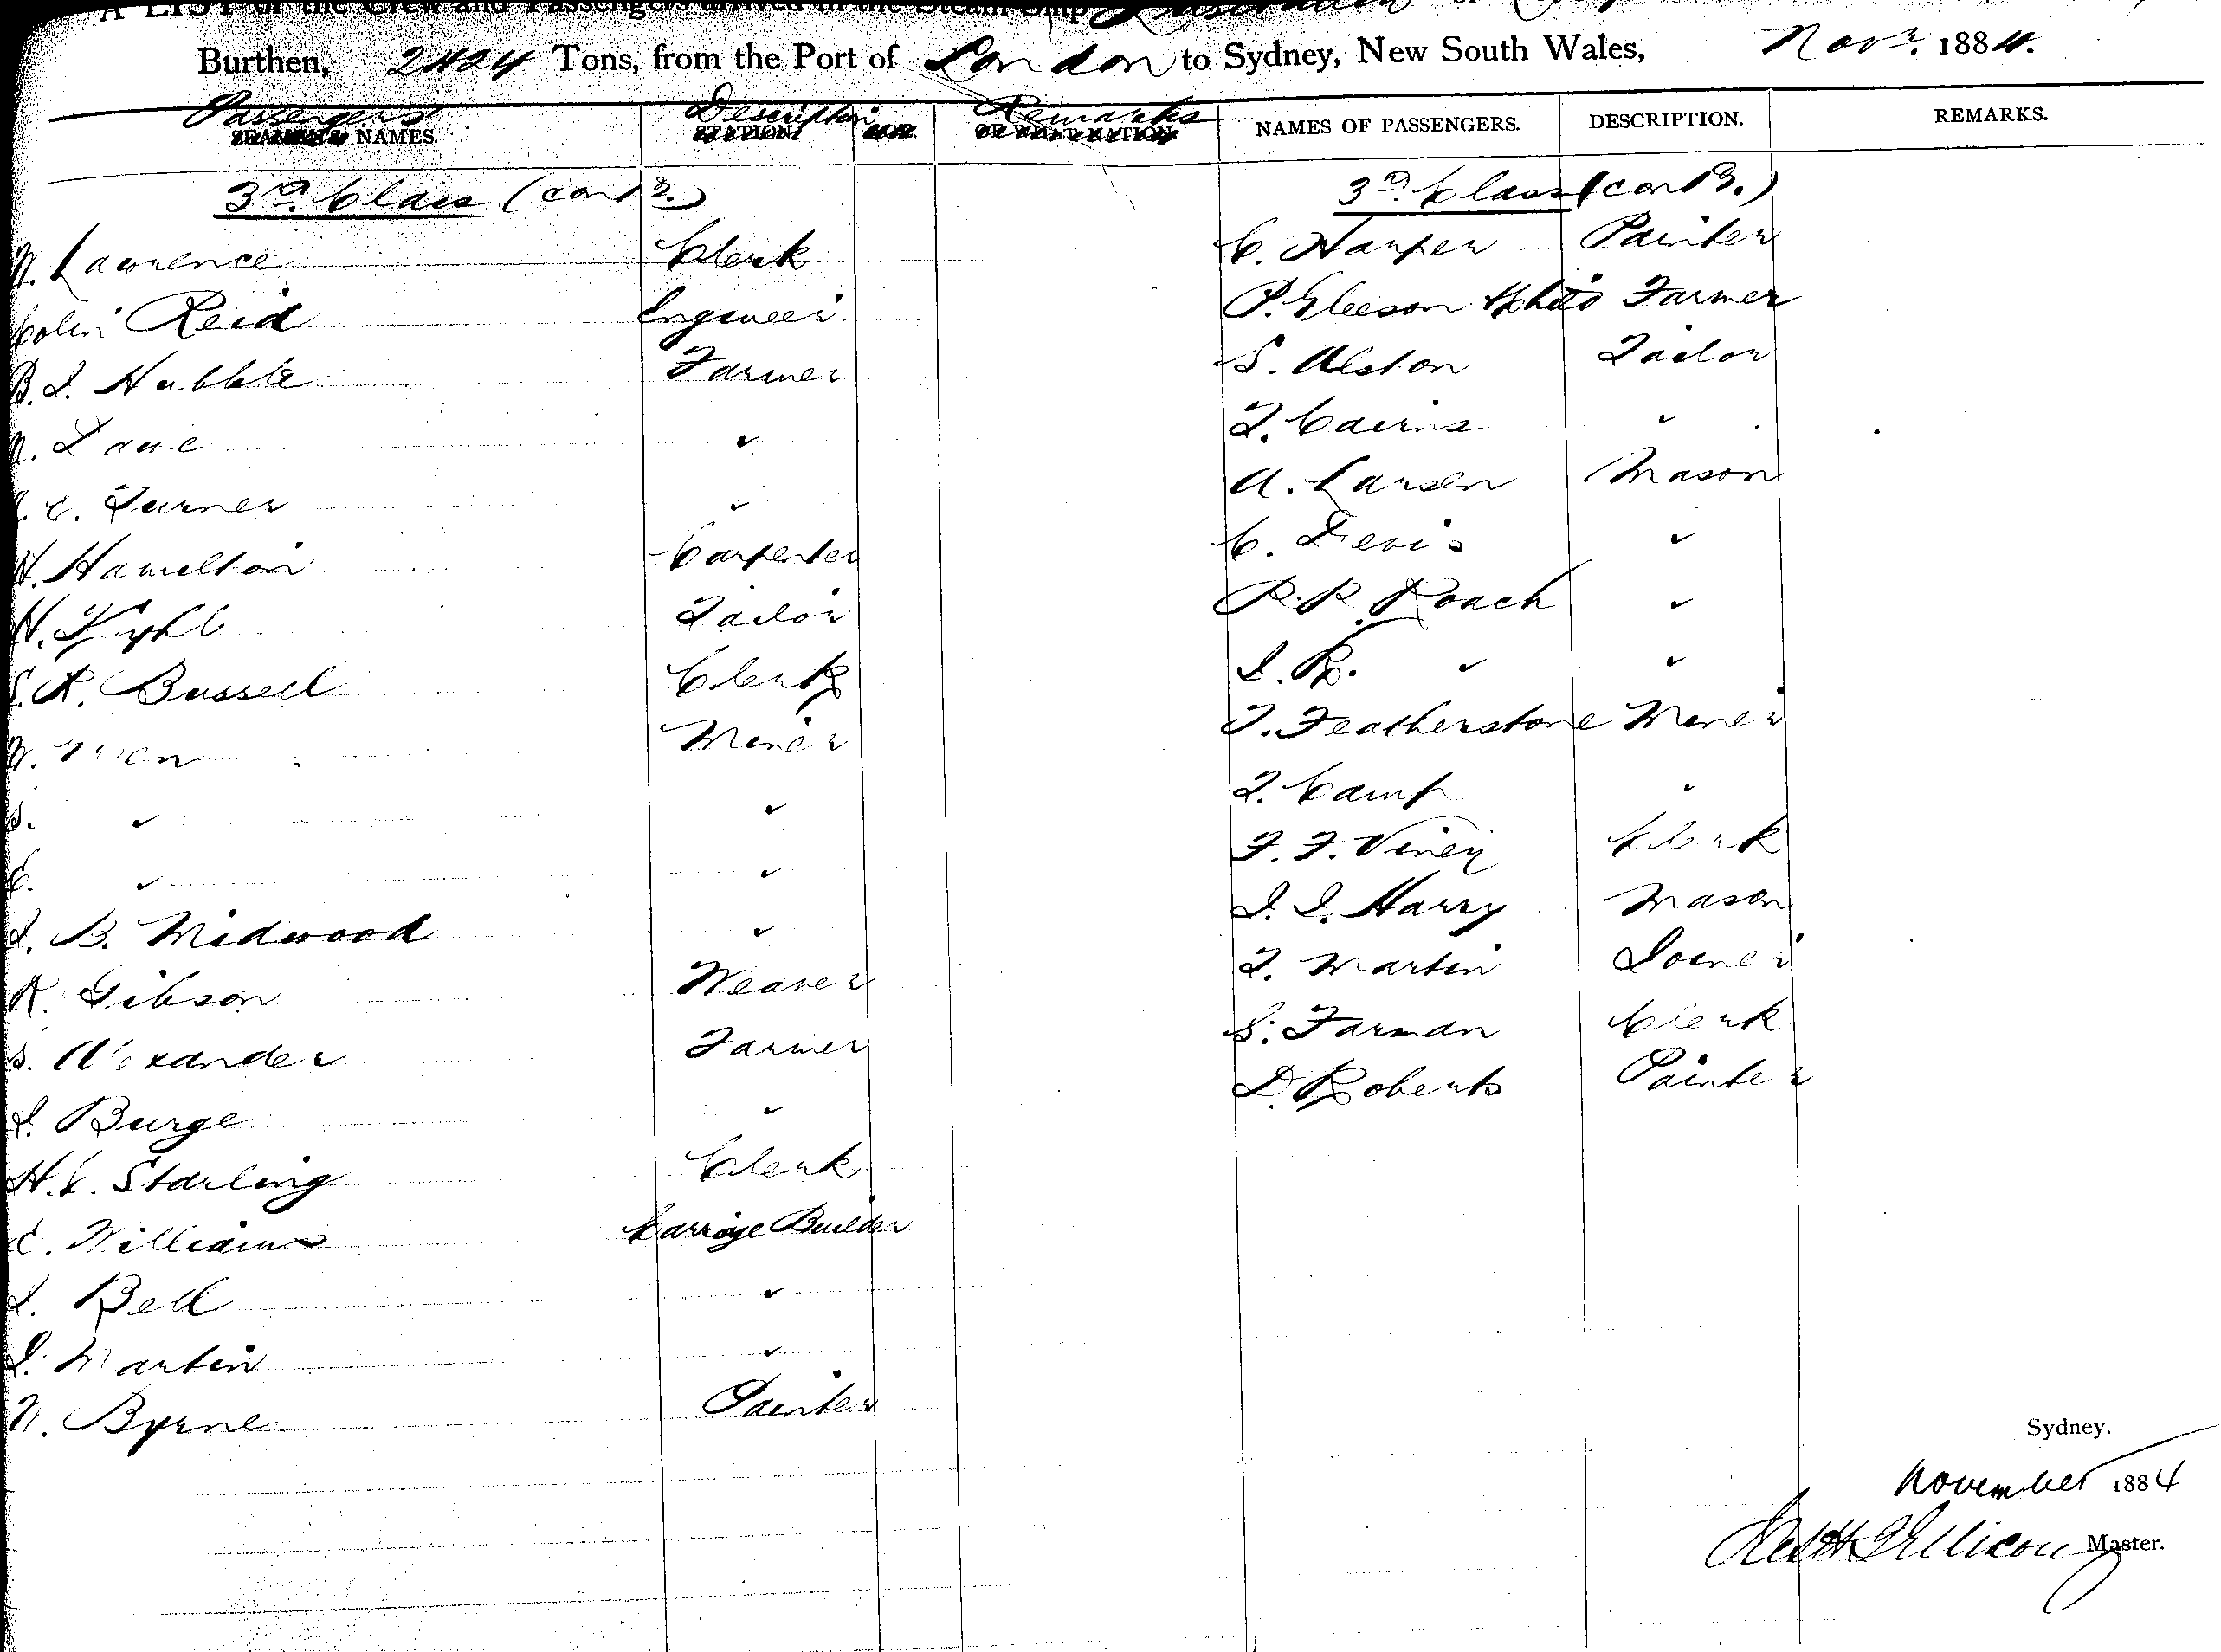 A LIST of the Crew and Passengers arrived in the Steam Ship of
Burthen, 2424 Tons, from the Port of London to Sydney, New South Wales, Novr. 1884.
Passengers NAMES. Description Remarks NAMES OF PASSENGERS. DESCRIPTION. REMARKS.
3rd. Class (contd.) 3rd. Class (contd.)
Lawrence Clerk
Colin Reid Engineer
Hubble Farmer
Lane "
C. Turner "
H. Hamilton Carpenter
H. Tailor
S.R. Bussell Clerk
W. Miner
S. " "
E. " "
J. B. Midwood "
R. Gibson Weaver
S. Alexander Farmer
J. Burge "
H.C. Starling Clerk
C. Williams Carriage Builder
J. Bell "
J. Martin "
W. Byrne Painter
C. Harper Painter
P. Gleeson White Farmer
S. Alston Tailor
T. Cairns "
A. Larsen Mason
C. "
R. R. Roach "
J. R. " "
T. Featherstone Miner
T. Camp "
F. F. Viney Clerk
J. J. Harry Mason
T. Martin Joiner
S. Farman Clerk
D. Roberts Painter
Sydney.
November 1884
Master.